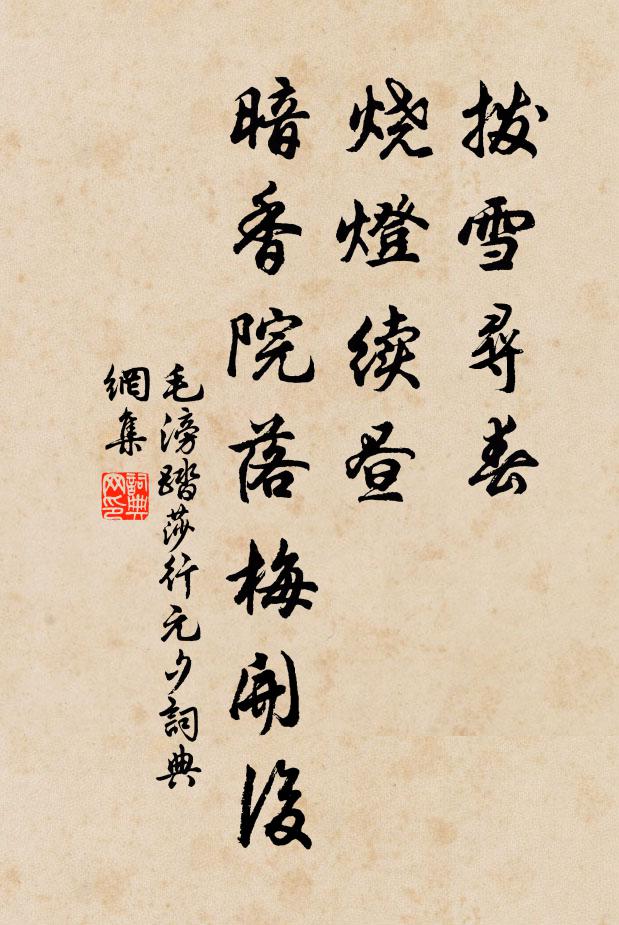 拨雪寻春
烧燈续昼
暗香院落梅開後
毛滂踏莎行元夕詞典
網集
詞典
网印